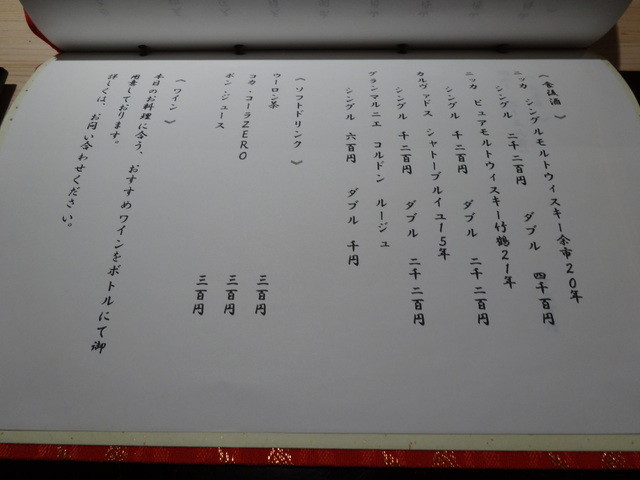 《 食後酒 》
ニッカ シングルモルトウィスキー余市20年
シングル 二千二百円 ダブル 四千百円
ニッカ ピュアモルトウィスキー竹鶴21年
シングル 千二百円 ダブル 二千二百円
カルヴァドス シャトーブルイユ15年
シングル 千二百円 ダブル 二千二百円
グランマルニエ コルドン ルージュ
シングル 六百円 ダブル 千円
《 ソフトドリンク 》
ウーロン茶 三百円
コカ・コーラZERO 三百円
ポン・ジュース 三百円
《 ワイン 》
本日のお料理に合う、おすすめワインをボトルにて御
用意しております。
詳しくは、お問い合わせください。